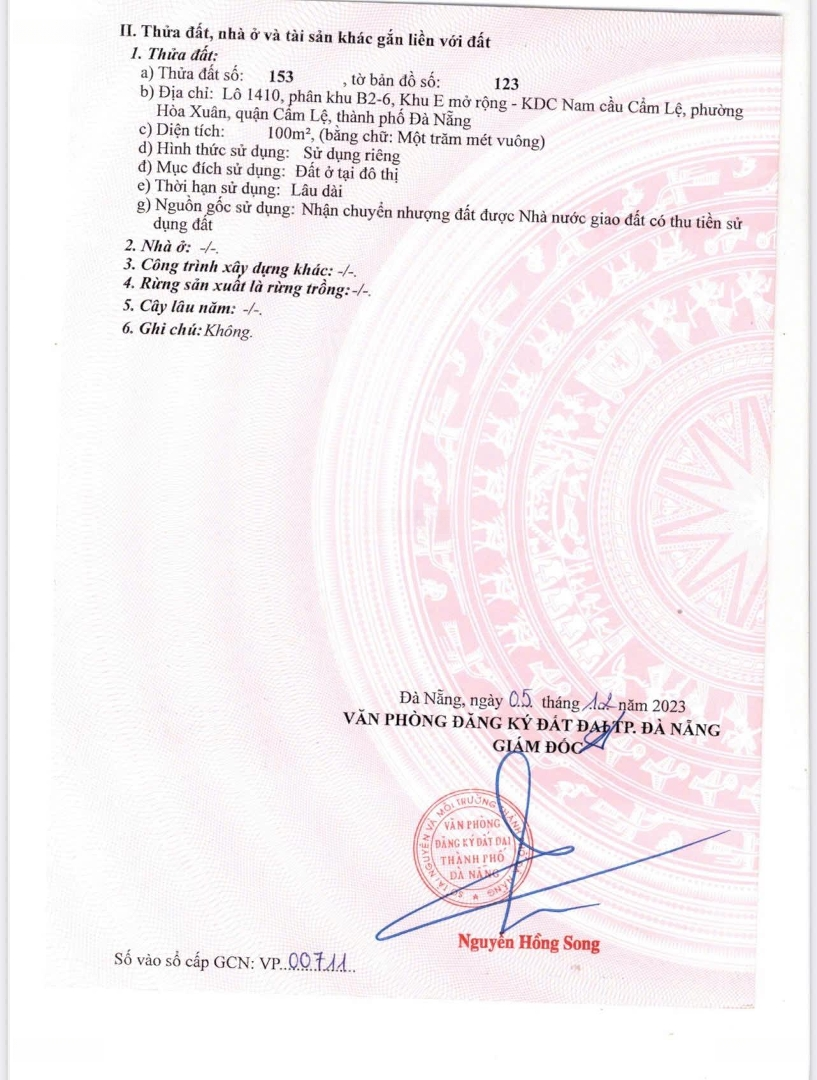 II. Thửa đất, nhà ở và tài sản khác gắn liền với đất
1. Thửa đất:
a) Thửa đất số: 153 , tờ bản đồ số: 123
b) Địa chỉ: Lô 1410, phân khu B2-6, Khu E mở rộng - KDC Nam cầu Cẩm Lệ, phường
Hòa Xuân, quận Cẩm Lệ, thành phố Đà Nẵng
c) Diện tích: 100m², (bằng chữ: Một trăm mét vuông)
d) Hình thức sử dụng: Sử dụng riêng
đ) Mục đích sử dụng: Đất ở tại đô thị
e) Thời hạn sử dụng: Lâu dài
g) Nguồn gốc sử dụng: Nhận chuyển nhượng đất được Nhà nước giao đất có thu tiền sử
dụng đất
2. Nhà ở: -/-.
3. Công trình xây dựng khác: -/-.
4. Rừng sản xuất là rừng trồng: -/-.
5. Cây lâu năm: -/-.
6. Ghi chú: Không.
Đà Nẵng, ngày 05 tháng 12 năm 2023
VĂN PHÒNG ĐĂNG KÝ ĐẤT ĐAI TP. ĐÀ NẴNG
GIÁM ĐỐC
SỞ TÀI NGUYÊN VÀ MÔI TRƯỜNG THÀNH PHỐ ĐÀ NẴNG
VĂN PHÒNG
ĐĂNG KÝ ĐẤT ĐAI
THÀNH PHỐ
ĐÀ NẴNG
Nguyễn Hồng Song
Số vào sổ cấp GCN: VP..00711..